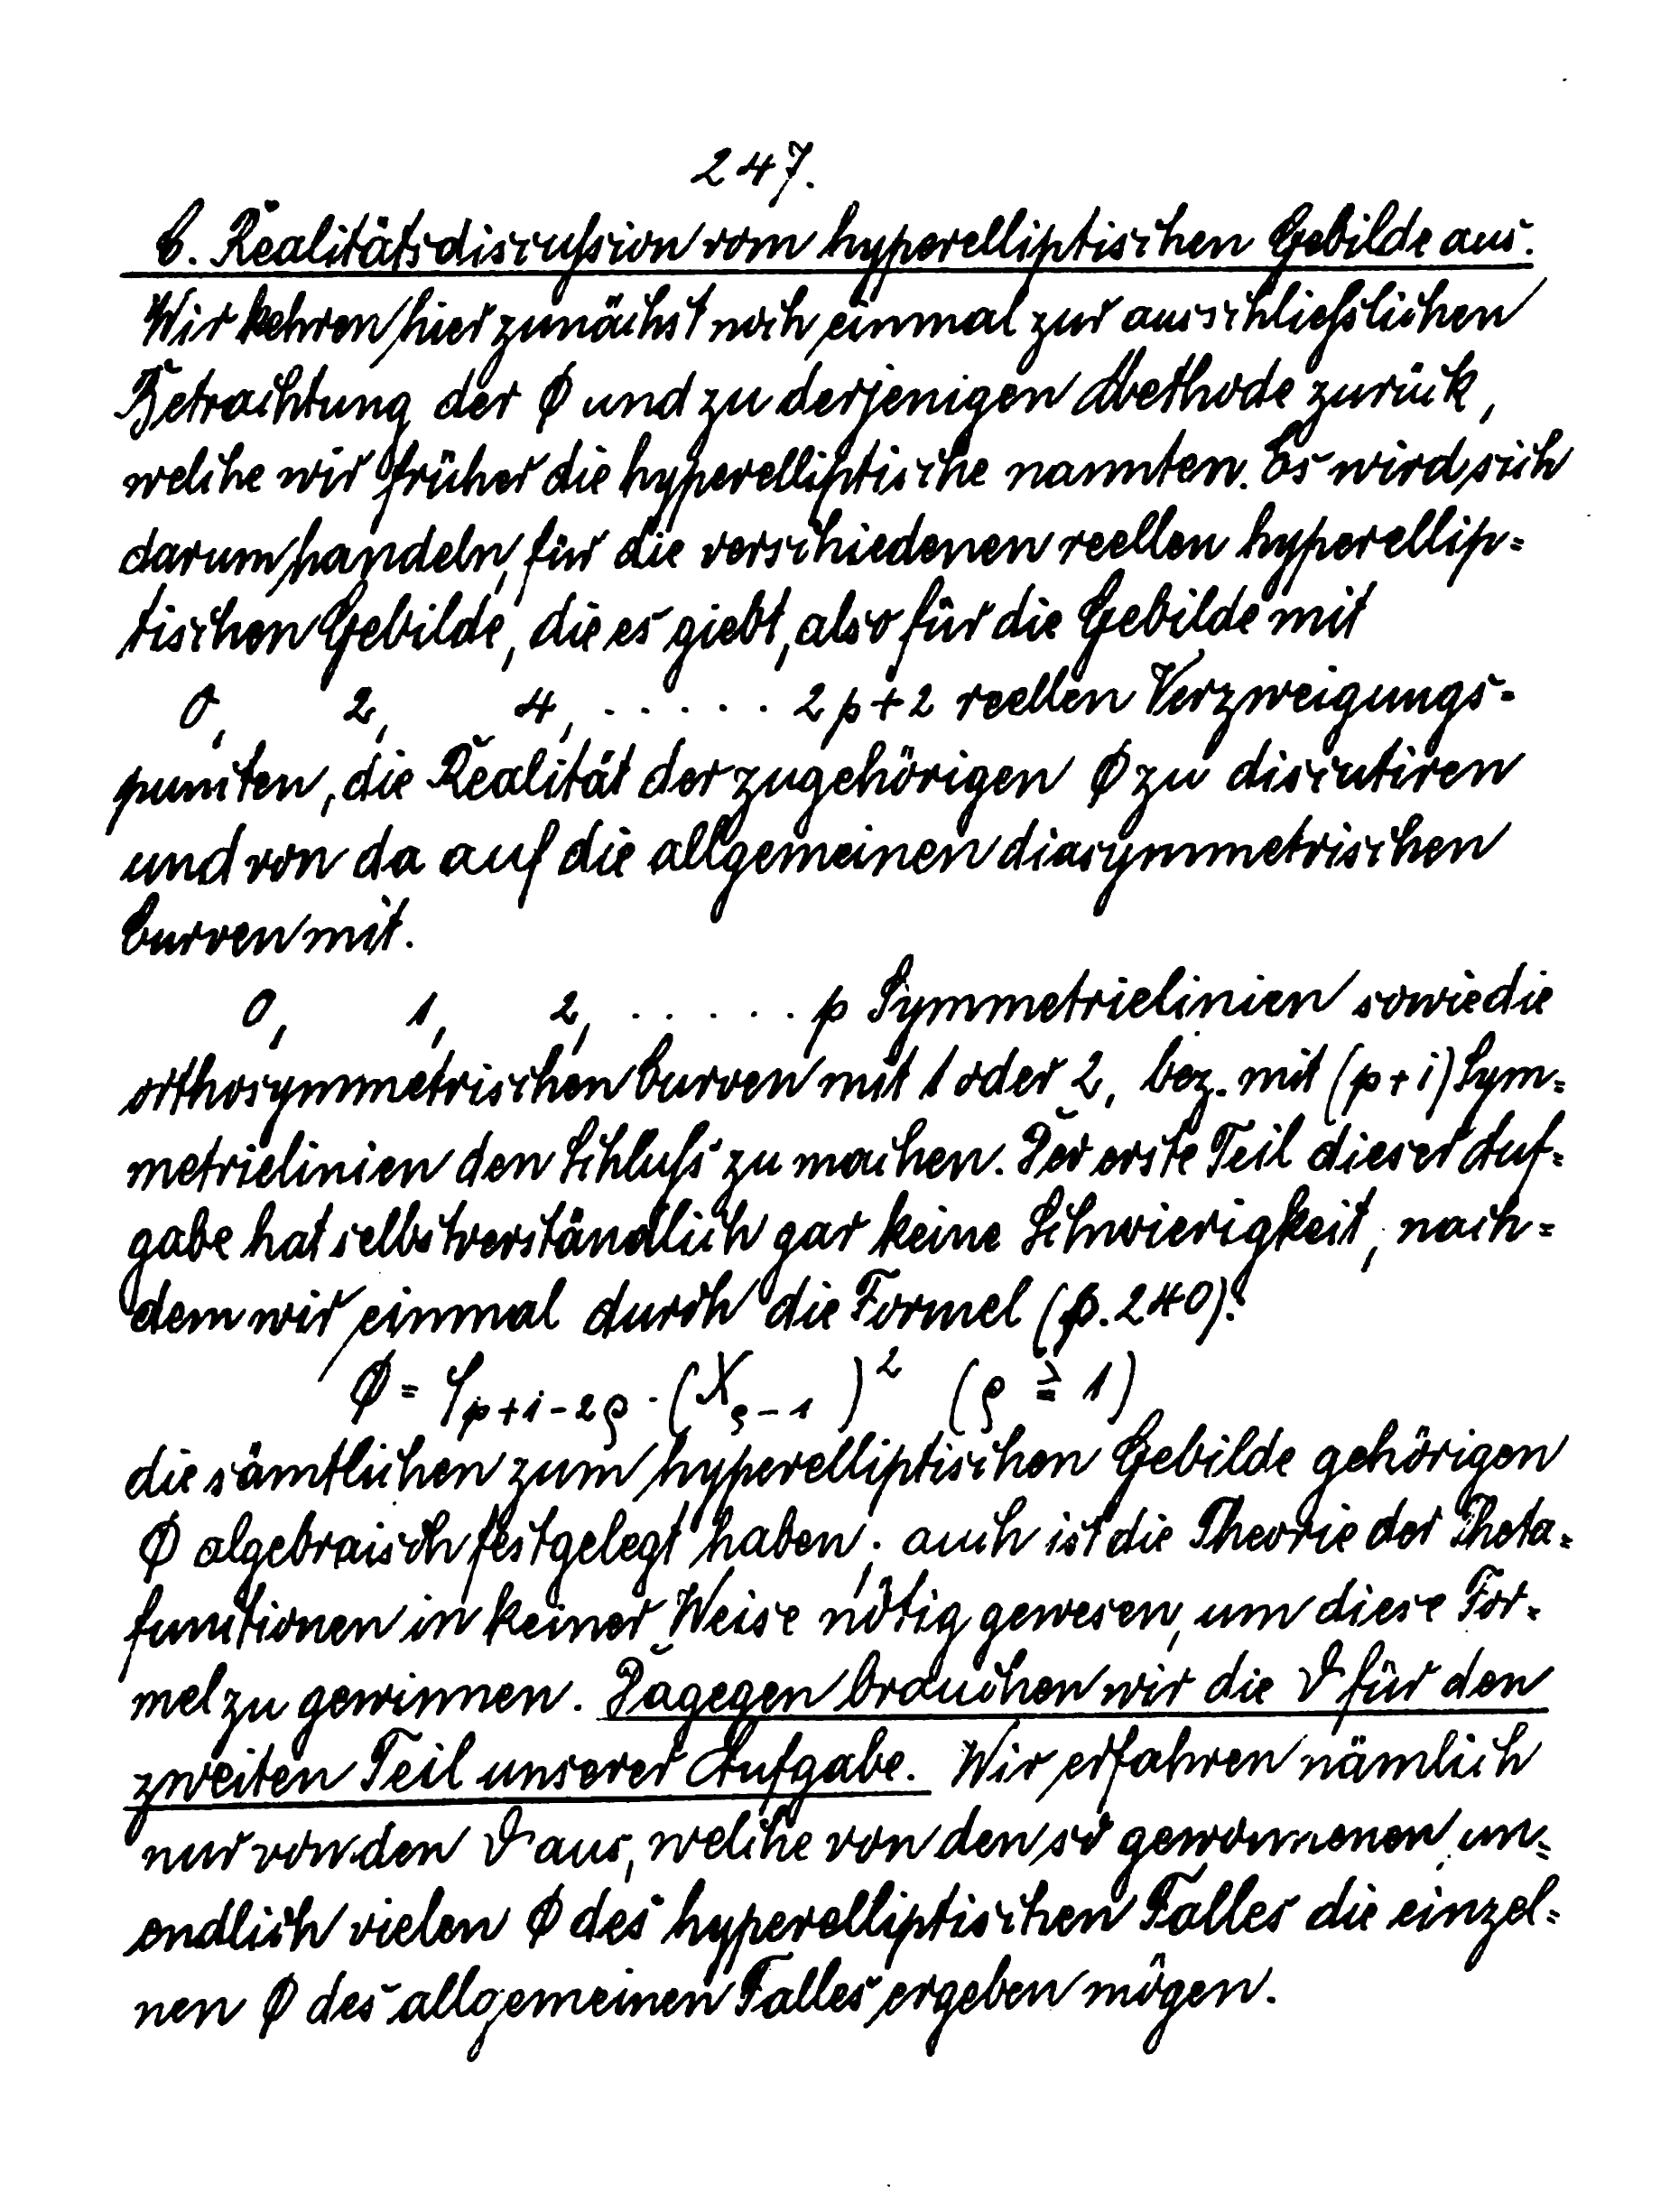 247.
C. Realitätsdiscussion vom hyperelliptischen Gebilde aus.
Wir kehren hier zunächst noch einmal zur ausschliesslichen
Betrachtung der Φ und zu derjenigen Methode zurück,
welche wir früher die hyperelliptische nannten. Es wird sich
darum handeln, für die verschiedenen reellen hyperellip=
tischen Gebilde, die es giebt, also für die Gebilde mit
0, 2, 4, ..... 2p+2 reellen Verzweigungs-
puncten, die Realität der zugehörigen Φ zu discutiren
und von da auf die allgemeinen diasymmetrischen
Curven mit.
0, 1, 2, ..... p Symmetrielinien sowie die
orthosymmetrischen Curven mit 1 oder 2, bez. mit (p+1) Sym=
metrielinien den Schluss zu machen. Der erste Teil dieser Auf=
gabe hat selbstverständlich gar keine Schwierigkeit, nach=
dem wir einmal durch die Formel (p. 240):
Φ = φ_{p+1-2ρ} · (X_{ρ-1})² (ρ ≧ 1)
die sämtlichen zum hyperelliptischen Gebilde gehörigen
Φ algebraisch festgelegt haben; auch ist die Theorie der Theta=
functionen in keiner Weise nötig gewesen, um diese For=
mel zu gewinnen. Dagegen brauchen wir die ϑ für den
zweiten Teil unserer Aufgabe. Wir erfahren nämlich
nur von den ϑ aus, welche von den so gewonnenen un=
endlich vielen Φ des hyperelliptischen Falles die einzel=
nen Φ des allgemeinen Falles ergeben mögen.